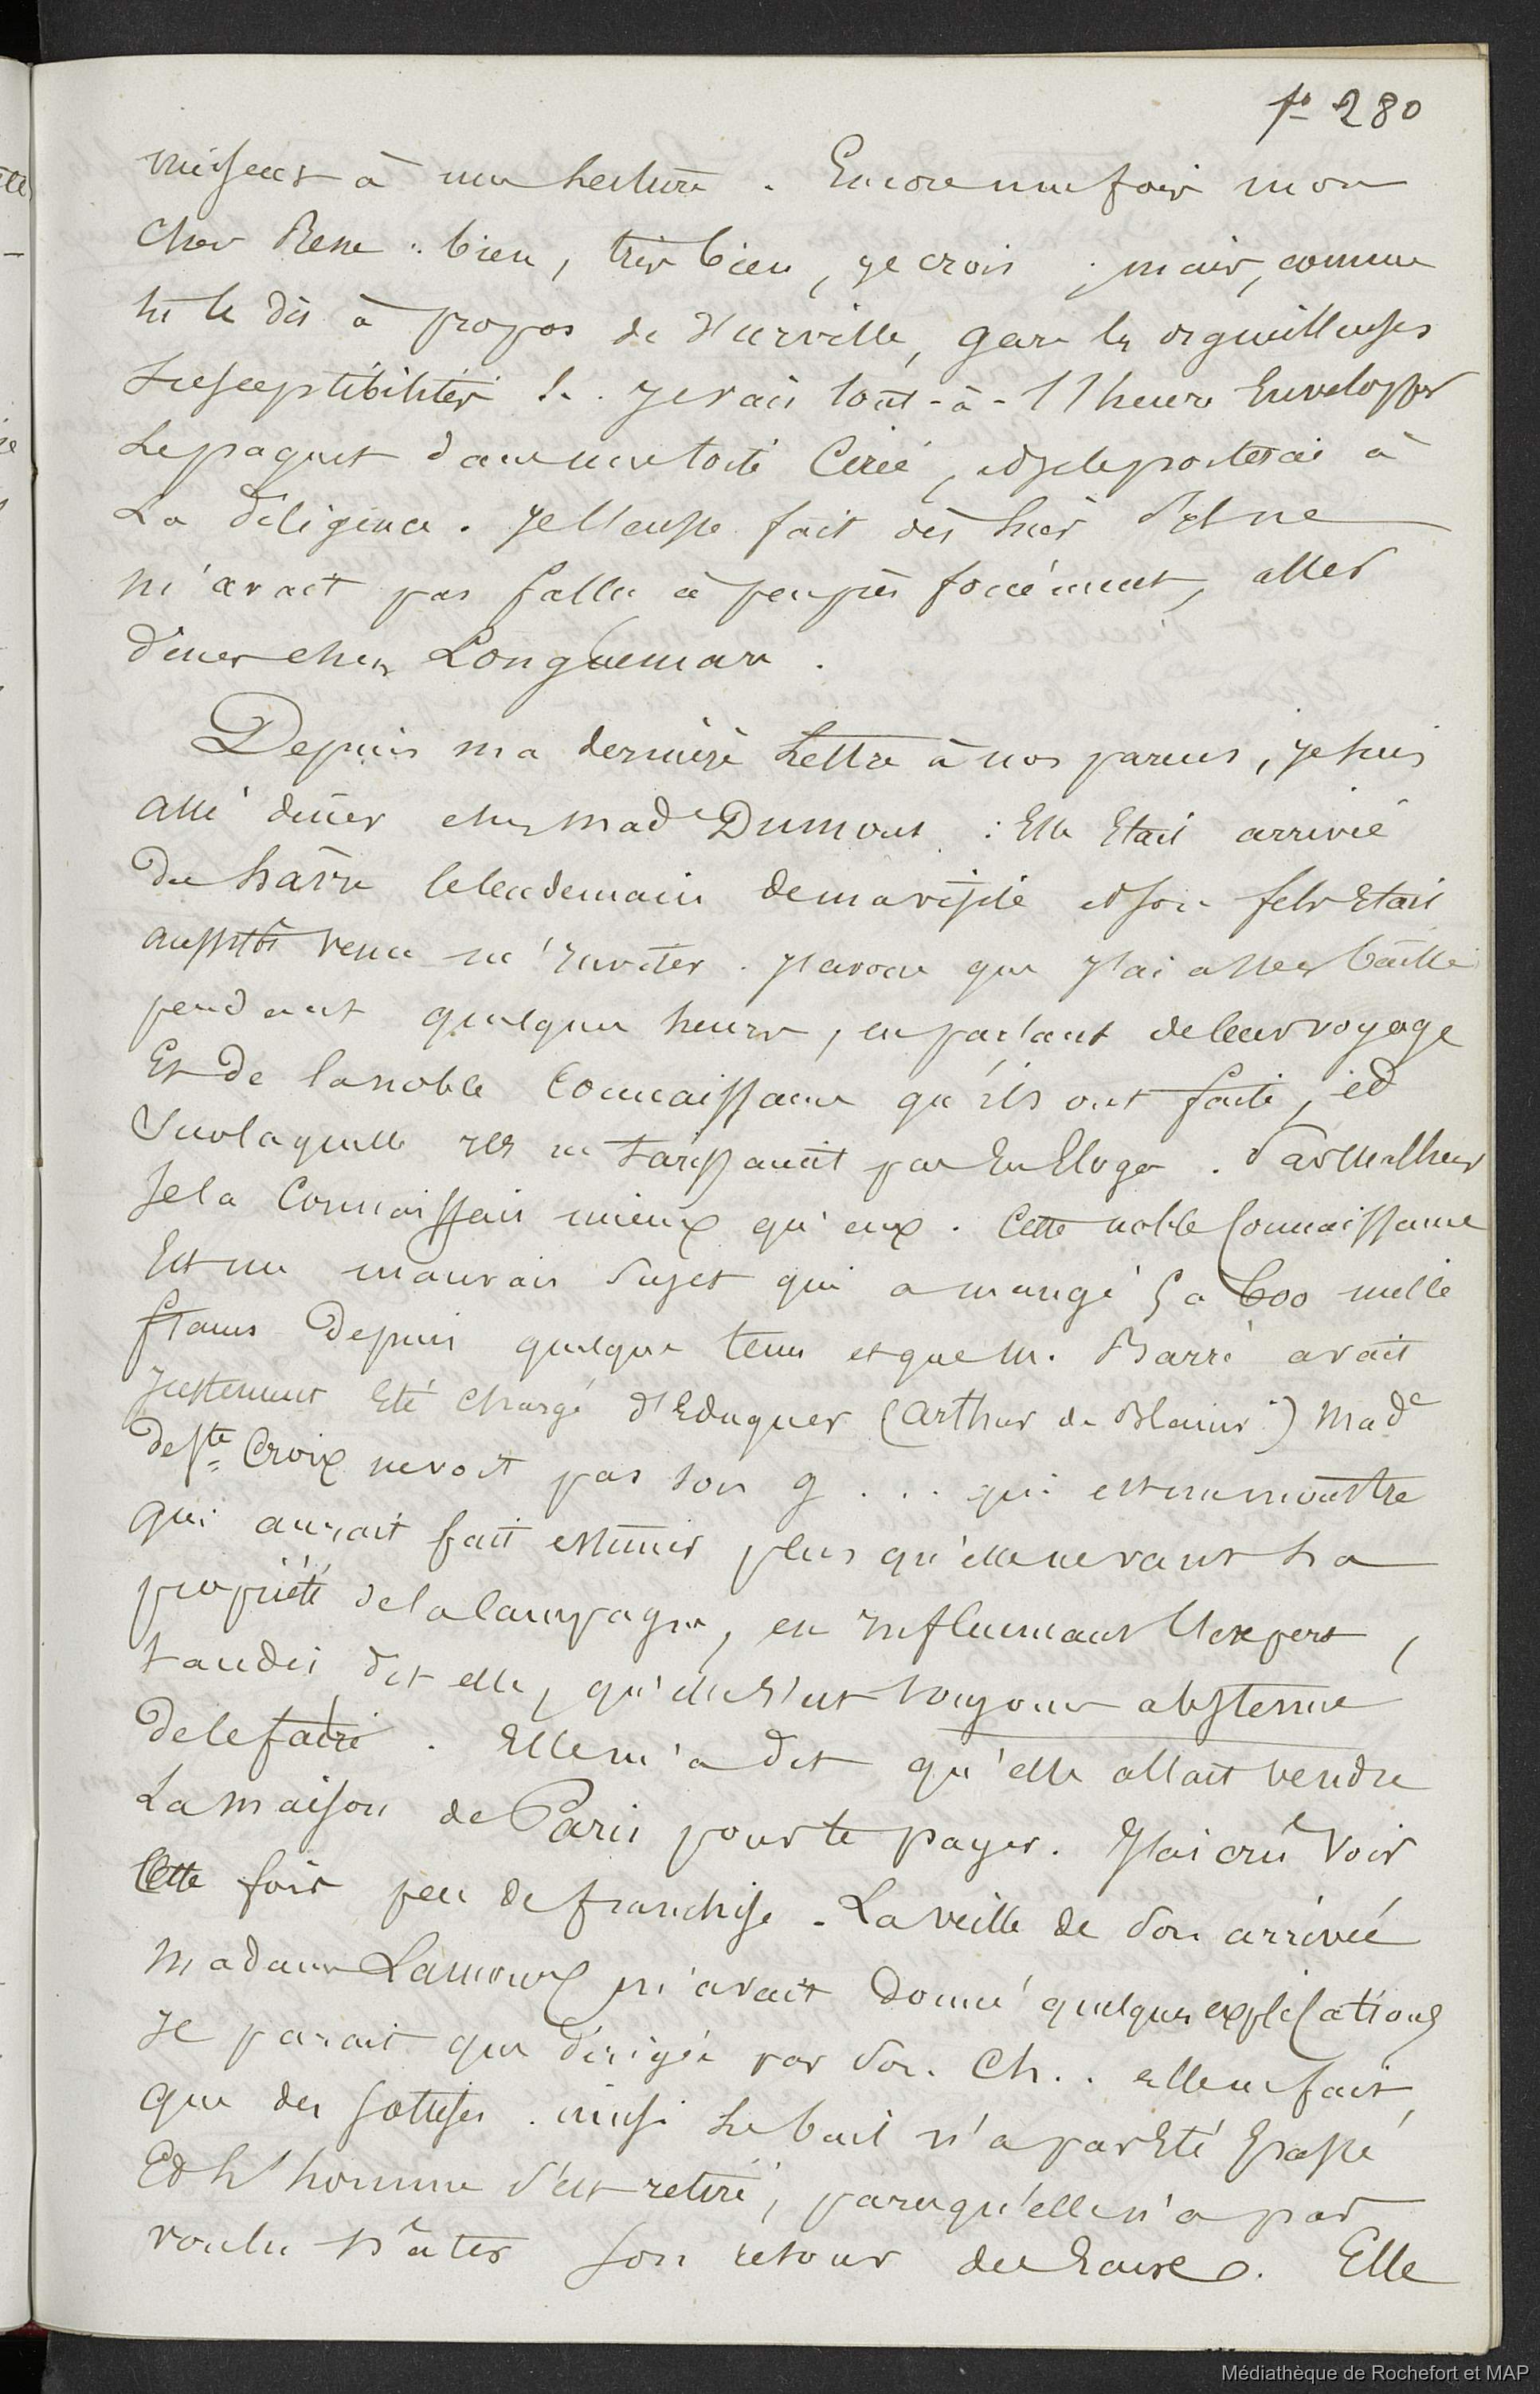 fo 280
nuisent à une lecture. Encore une fois mon
cher Rene : bien, très bien, je crois ; mais, comme
tu le dis à propos de d'Urville, gare les orgueilleuses
susceptibilités !.. Je vais tout-à-l'heure Envelopper
Le paquet dans une toile Cirée, et je le porterai à
La diligence. Je l'eusse fait dès hier s'il ne
m'avait pas fallu à peu près forcément, aller
dîner chez Longuemare.
Depuis ma dernière Lettre à nos parens, je suis
allé dîner chez Made Dumont : Elle Etait arrivée
du hâvre le lendemain de ma visite et son fils Etait
aussitôt venu m'inviter. J'avoue que j'ai assez bâillé
pendant quelques heures, en parlant de leur voyage
Et de la noble Connaissance qu'ils ont faite, et
Sur laquelle ils ne tarissaient pas En Eloges. Par malheur
Je la Connaissais mieux qu'eux. Cette noble Connaissance
Est un mauvais Sujet qui a mangé 5 a 600 mille
francs Depuis quelque tems et que M. Barré avait
justement Eté chargé d'Eduquer (Arthur de ) Made
de Ste Croix ne voit pas son g . . . qui est un monstre
qui aurait fait estimer plus qu'elle ne vaut Sa
propriété de la Campagne, en influençant l'expert,
tandis, dit elle, qu'elle s'est toujours abstenue
de le faire. Elle m'a dit qu'elle allait vendre
La maison de Paris pour te payer. J'ai crû voir
Cette fois peu de franchise. La veille de Son arrivée
madame Lamoureux m'avait donné quelques explications
Il parait que dirigée par Son Ch.. elle ne fait
que des sottises. ainsi Le bail n'a pas Eté passé
Et L'homme s'est retiré, parcequ'elle n'a pas
voulu hâter son retour du havre. Elle
Médiathèque de Rochefort et MAP